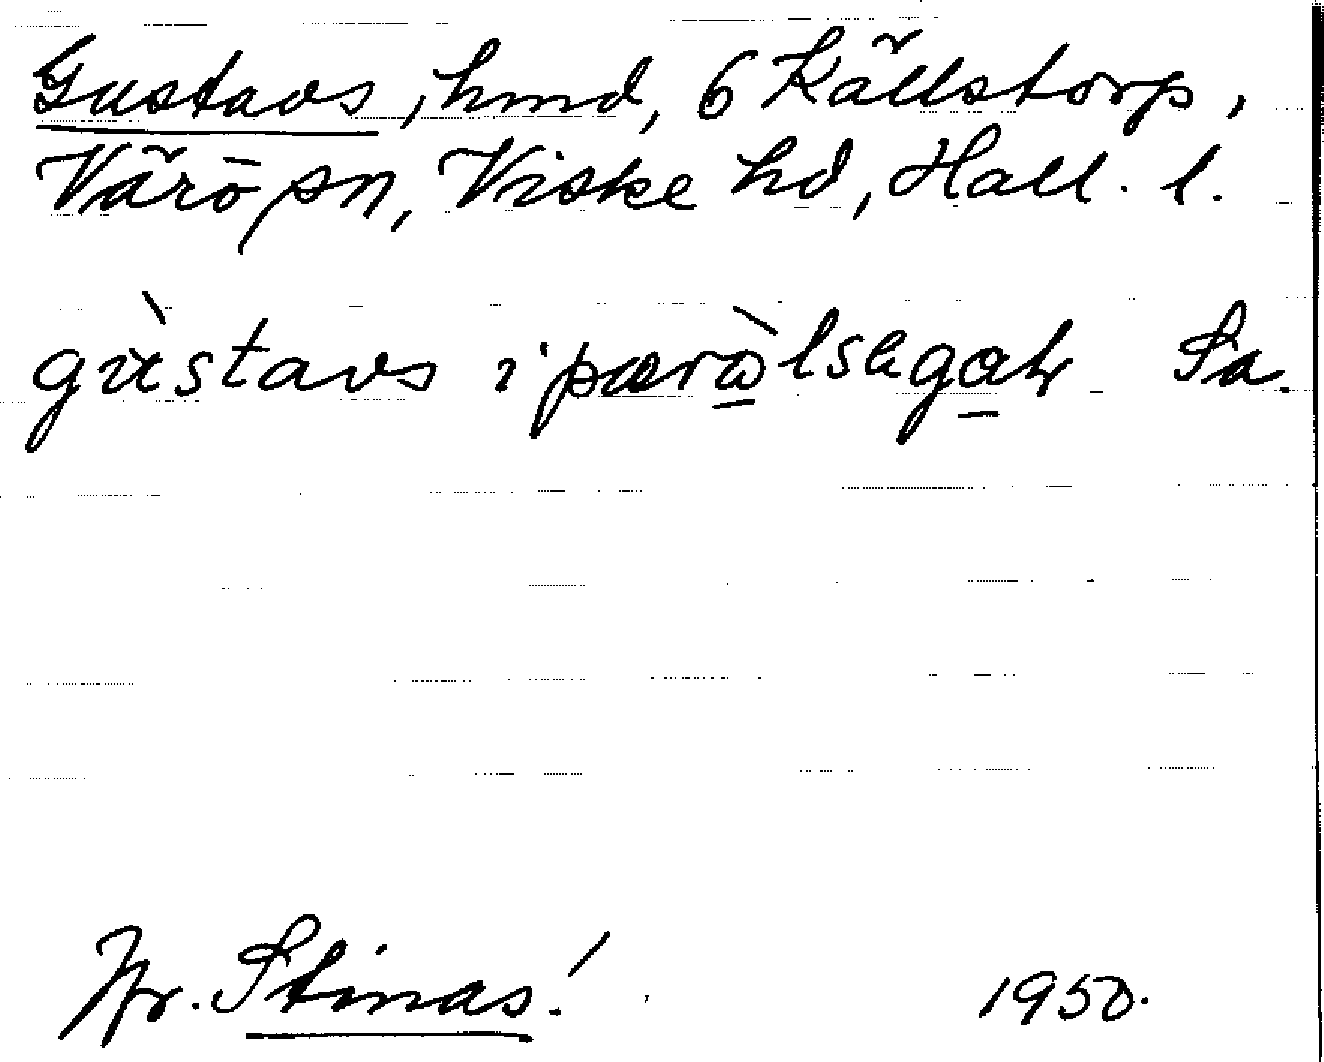 Gustavs, hmd, 6 Källstorp,
Värö sn, Viske hd, Hall. l.
gùstavs i Sa.
Jfr. Stinas!
1950.